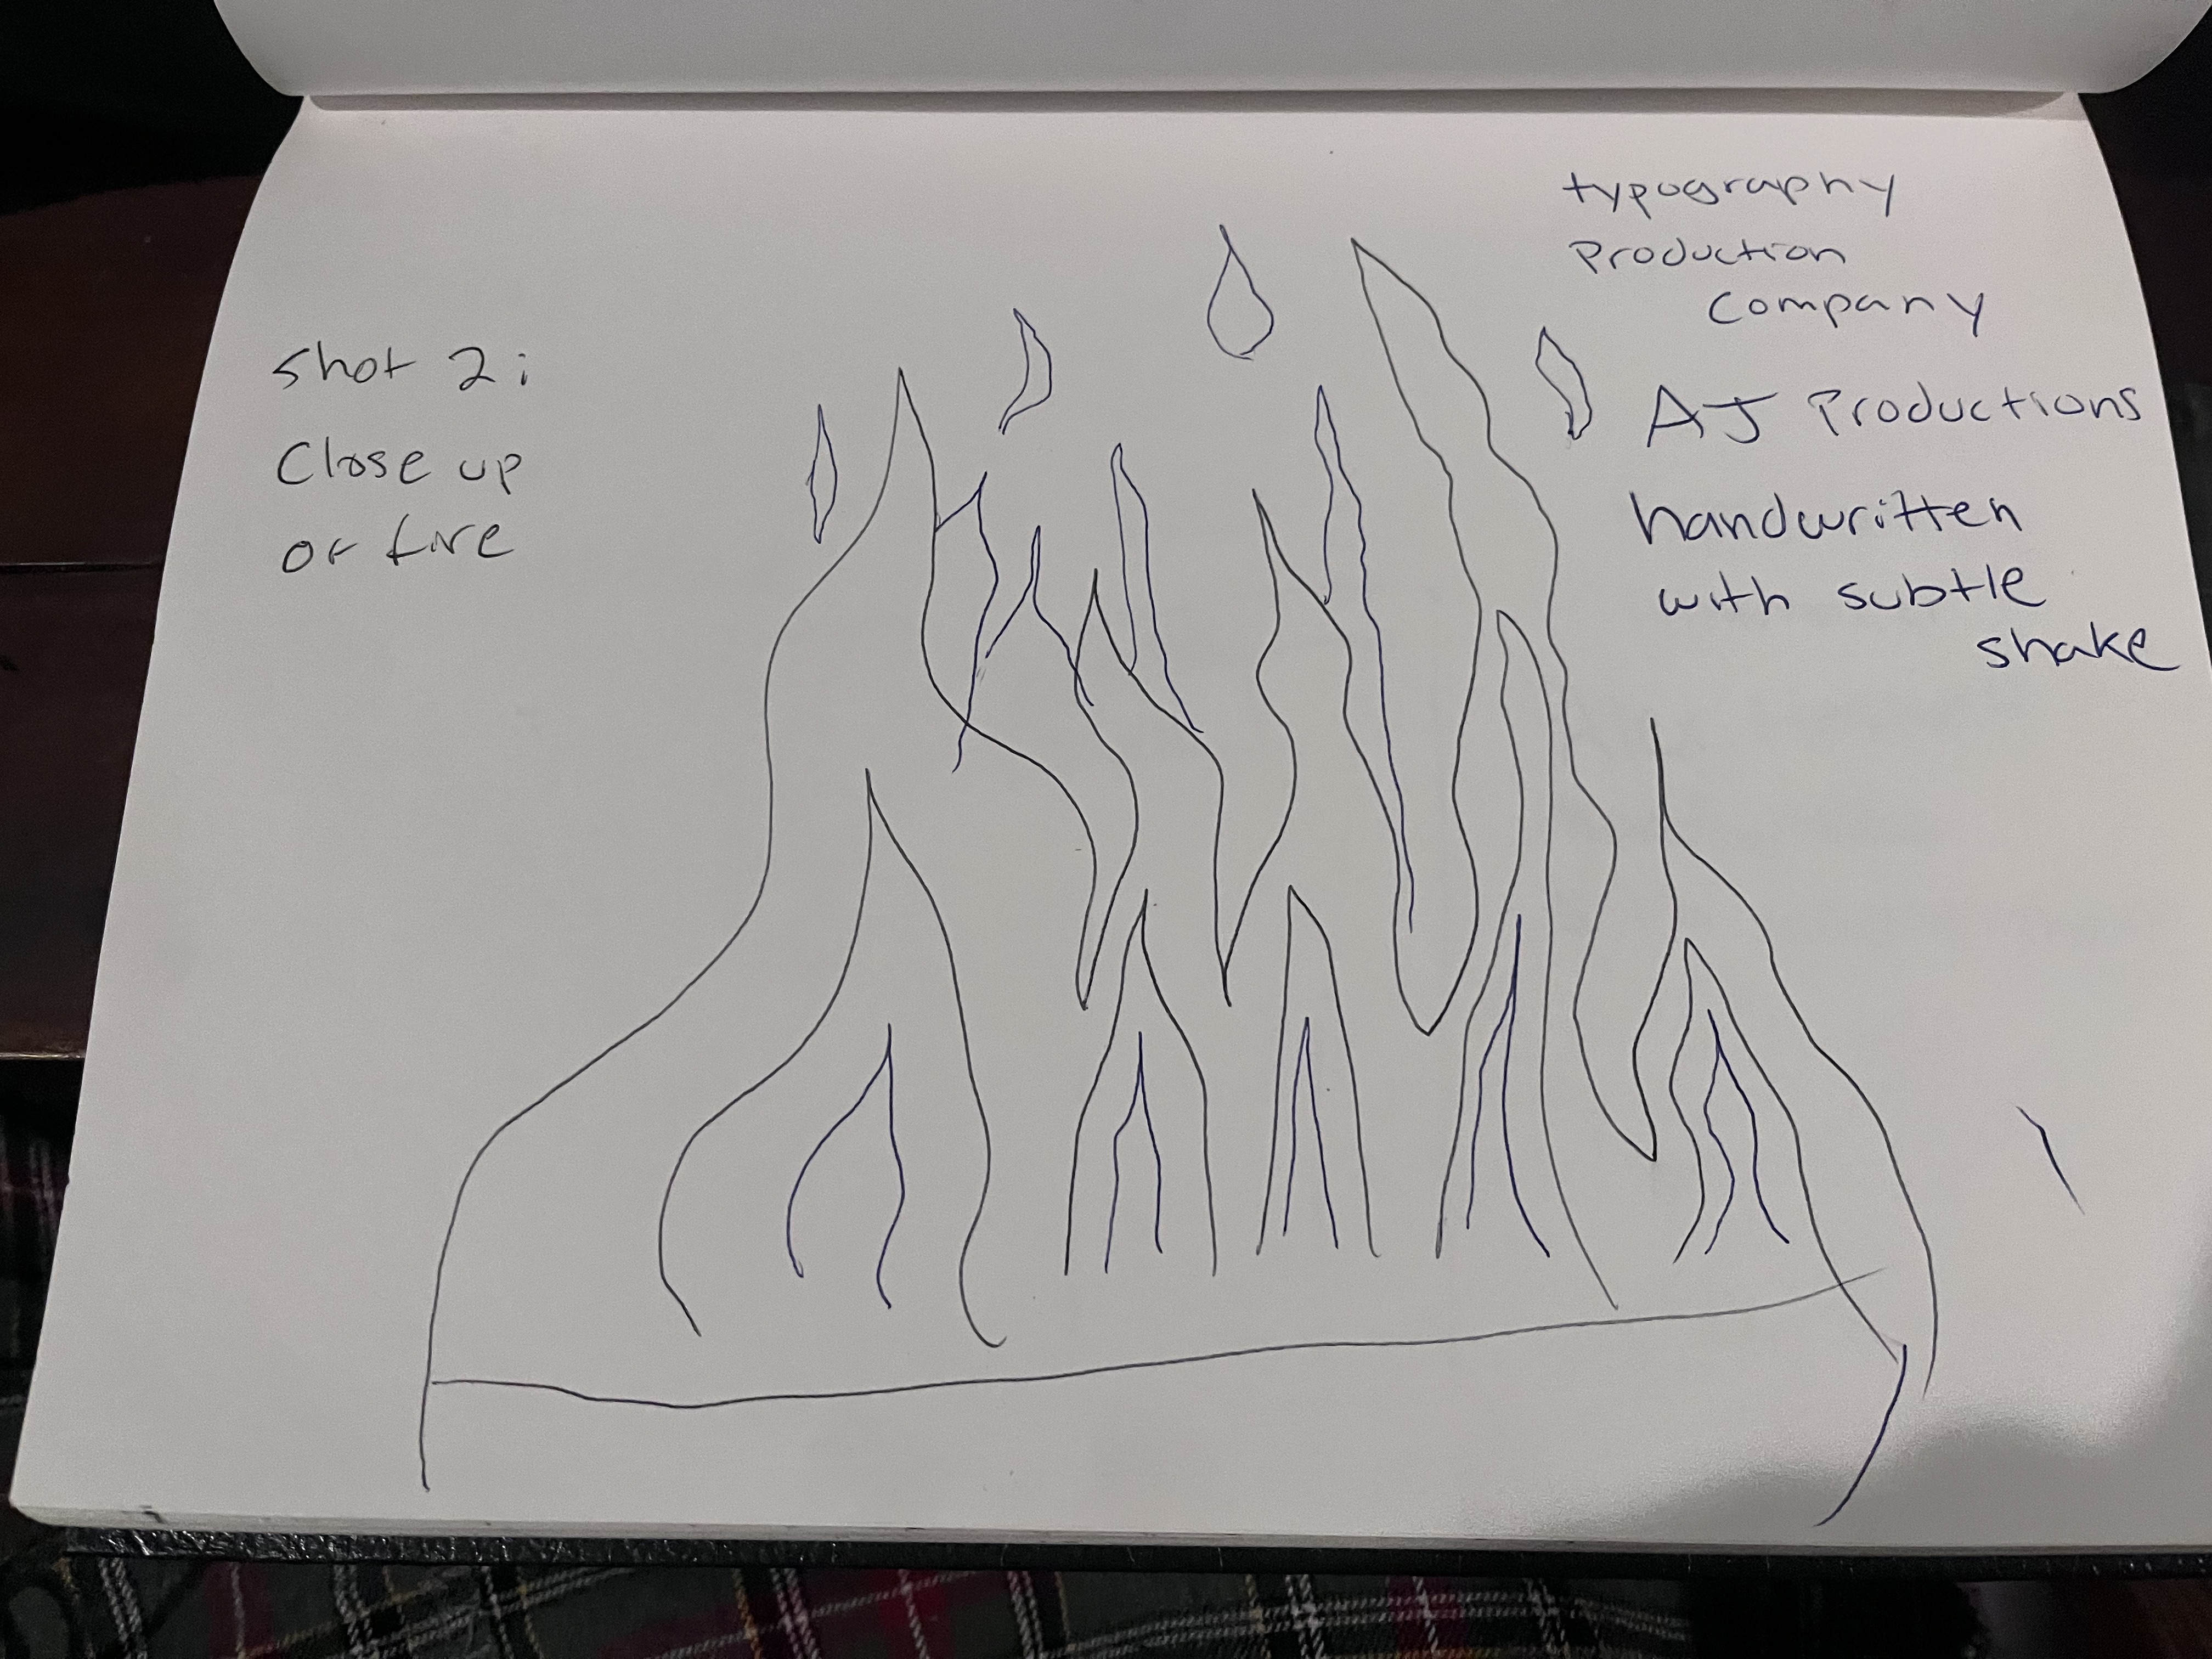 Shot 2:
Close up
of fire
typography
Production
Company
AJ Productions
handwritten
with subtle
shake